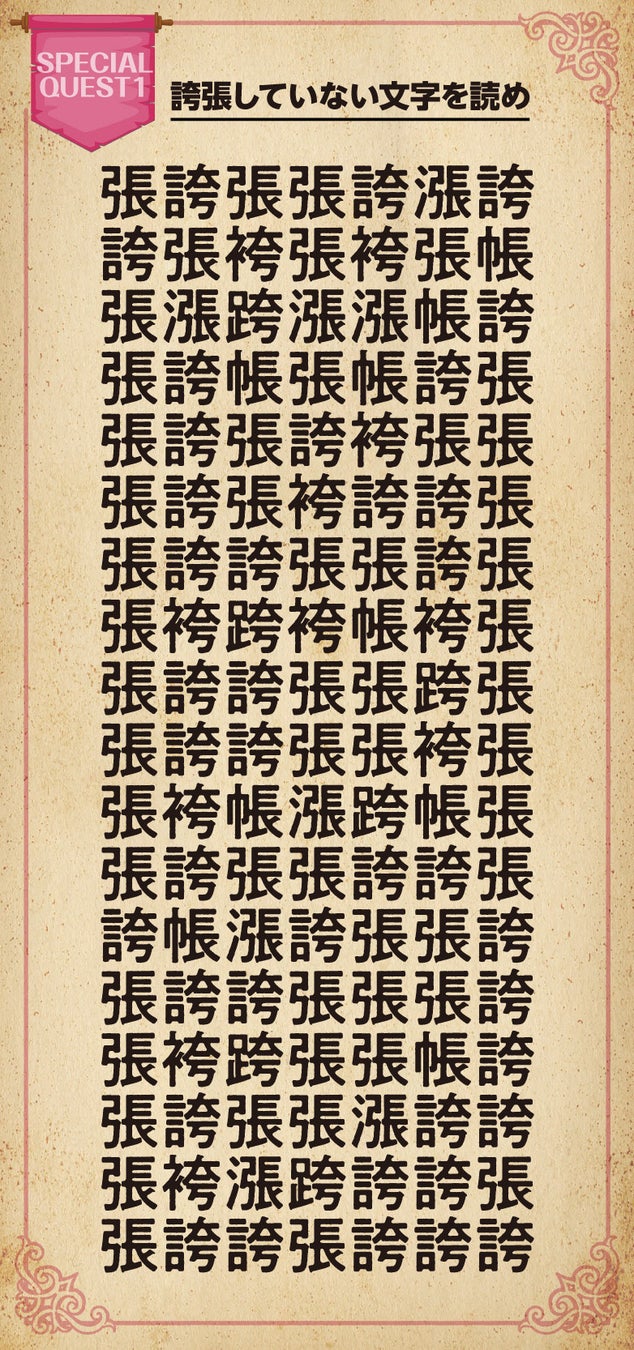 SPECIAL
QUEST1
誇張していない文字を読め
張誇張張誇漲誇
誇張袴張袴張帳
張漲跨漲漲帳誇
張誇帳張帳誇張
張誇張誇袴張張
張誇張袴誇誇張
張誇誇張張誇張
張袴跨袴帳袴張
張誇誇張張跨張
張誇誇張張袴張
張袴帳漲跨帳張
張誇張張誇誇張
誇帳漲誇張張誇
張誇誇張張張誇
張袴跨張張帳誇
張誇張張漲誇誇
張袴漲跨誇誇張
張誇誇張誇誇誇